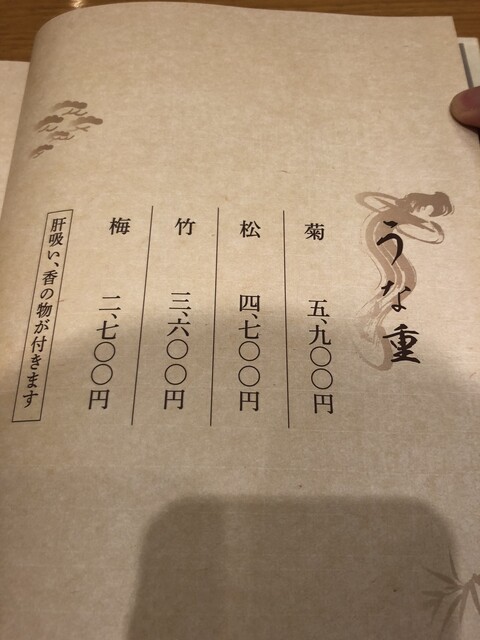 うな重
菊 五、九〇〇円
松 四、七〇〇円
竹 三、六〇〇円
梅 二、七〇〇円
肝吸い、香の物が付きます